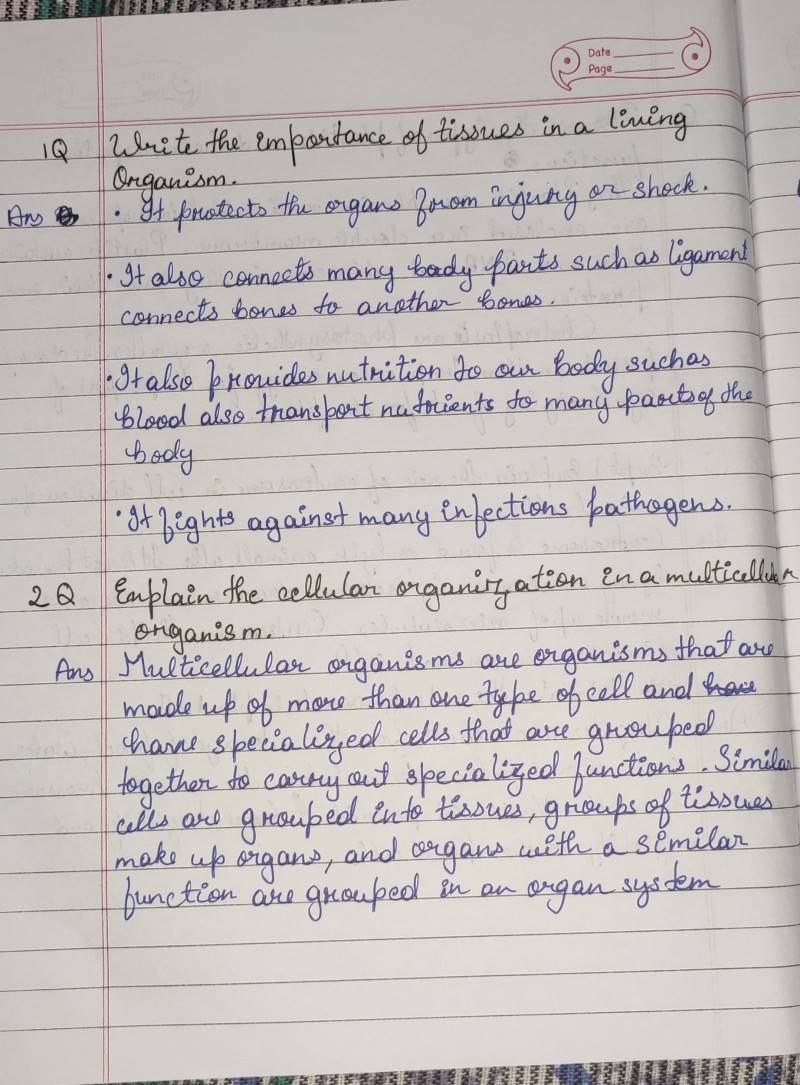 Date
Page
1Q Write the importance of tissues in a living
Organism.
Ans • It protects the organs from injury or shock.
• It also connects many body parts such as ligament
connects bones to another bones.
• It also provides nutrition to our body such as
blood also transport nutrients to many parts of the
body
• It fights against many infections pathogens.
2Q Explain the cellular organization in a multicellular
organism.
Ans Multicellular organisms are organisms that are
made up of more than one type of cell and have
have specialized cells that are grouped
together to carry out specialized functions. Similar
cells are grouped into tissues, groups of tissues
make up organs, and organs with a similar
function are grouped in an organ system